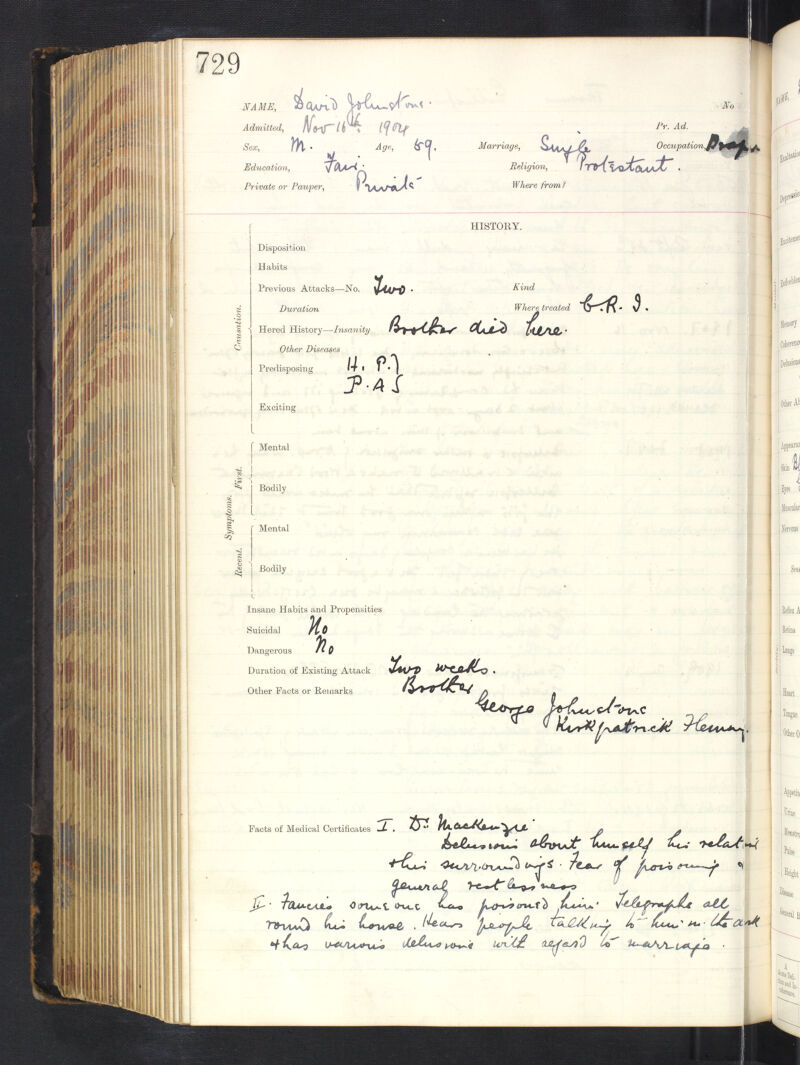 729
NAME, David Johnstone. No
Admitted, Nov 16th. 1904 Pr. Ad.
Sex, M. Age, 59. Marriage, Single Occupation, Drap
Education, Fair. Religion, Protestant.
Private or Pauper, Private Where from?
HISTORY.
Disposition
Habits
Previous Attacks—No. Two. Kind
Duration Where treated C.R.I.
Causation.
Hered History—Insanity Brother died here.
Other Diseases
Predisposing H. P.}
P. A }
Exciting
Symptoms.
First.
Mental
Bodily
Recent.
Mental
Bodily
Insane Habits and Propensities
Suicidal No
Dangerous No
Duration of Existing Attack Two weeks.
Other Facts or Remarks Brother
George Johnstone
Kirkpatrick Fleming.
Facts of Medical Certificates I. Dr. Mackenzie
Delusions about himself his relatives
& his surroundings. Fear of poisoning &
general restlessness
II. Fancies someone has poisoned him. Telegraphs all
round his house. Hears people talking to him in the dark
& has various delusions with regard to marriage.